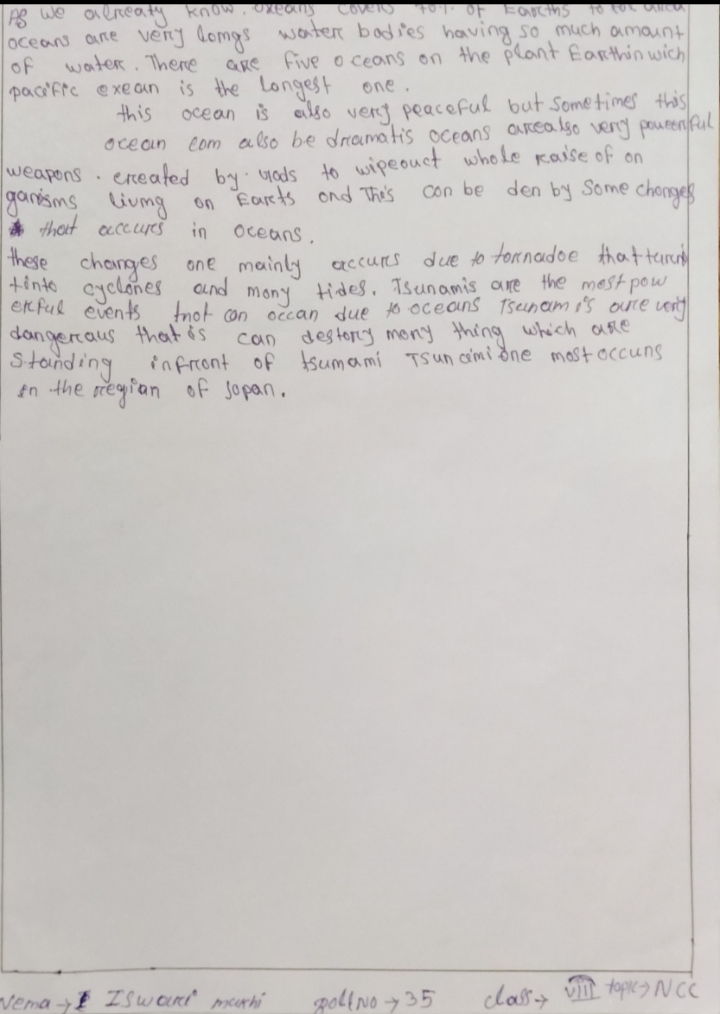 As we already know. oxeans covers 70% of Earths total area
oceans are very lomgs water bodies having so much amount
of water. There are five oceans on the plant Earthin wich
pacific exean is the longest one.
this ocean is also very peaceful but sometimes this
ocean com also be dramatis oceans arealso very powerful
weapons. created by gods to wipeout whole raise of on
ganisms livmg on Earts and This can be den by some changes
that accurs in oceans.
these changes one mainly accurs due to tornadoe that turn
tinto cyclones and mony tides. Tsunamis are the most pow
erful events tnot can occan due to oceans Tsunamis are very
dangeraus that is can destory mony thing which are
Standing infront of tsumami Tsunamione most occuns
in the regian of Jopan.
Nema → Iswari markhi Roll No → 35 class → VIII topic → NCC